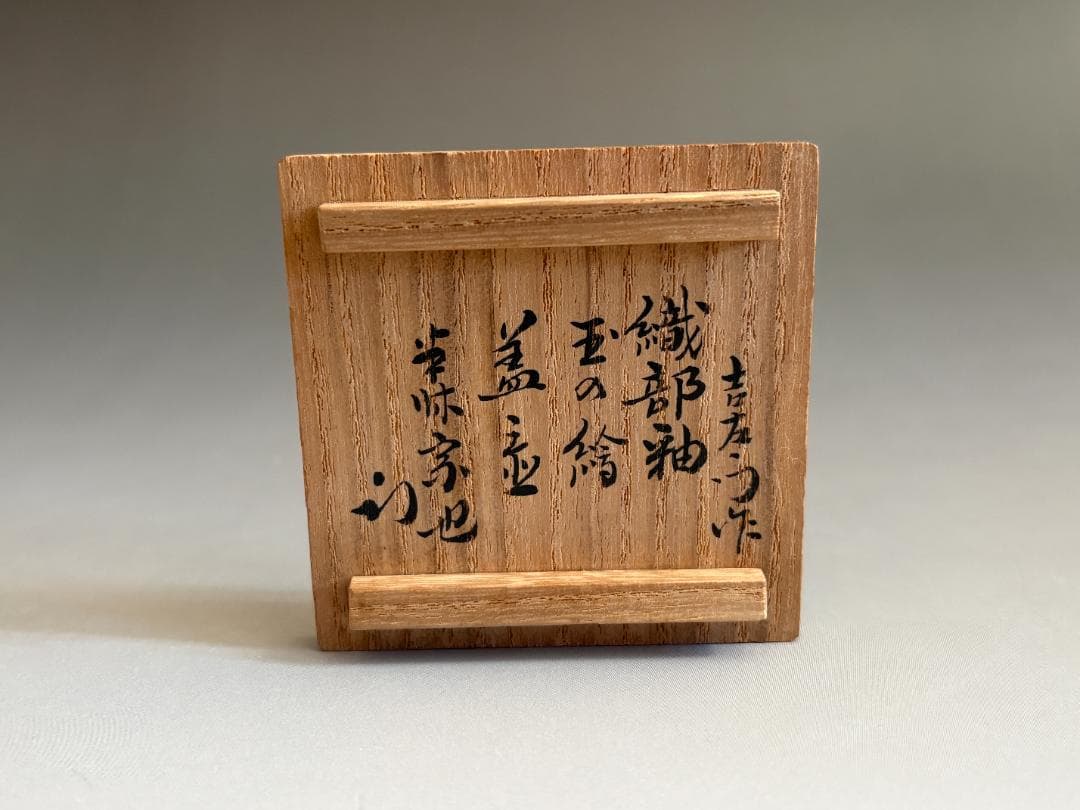 吉左衛門作
織部釉
玉の繪
盖壷
半牀宗也